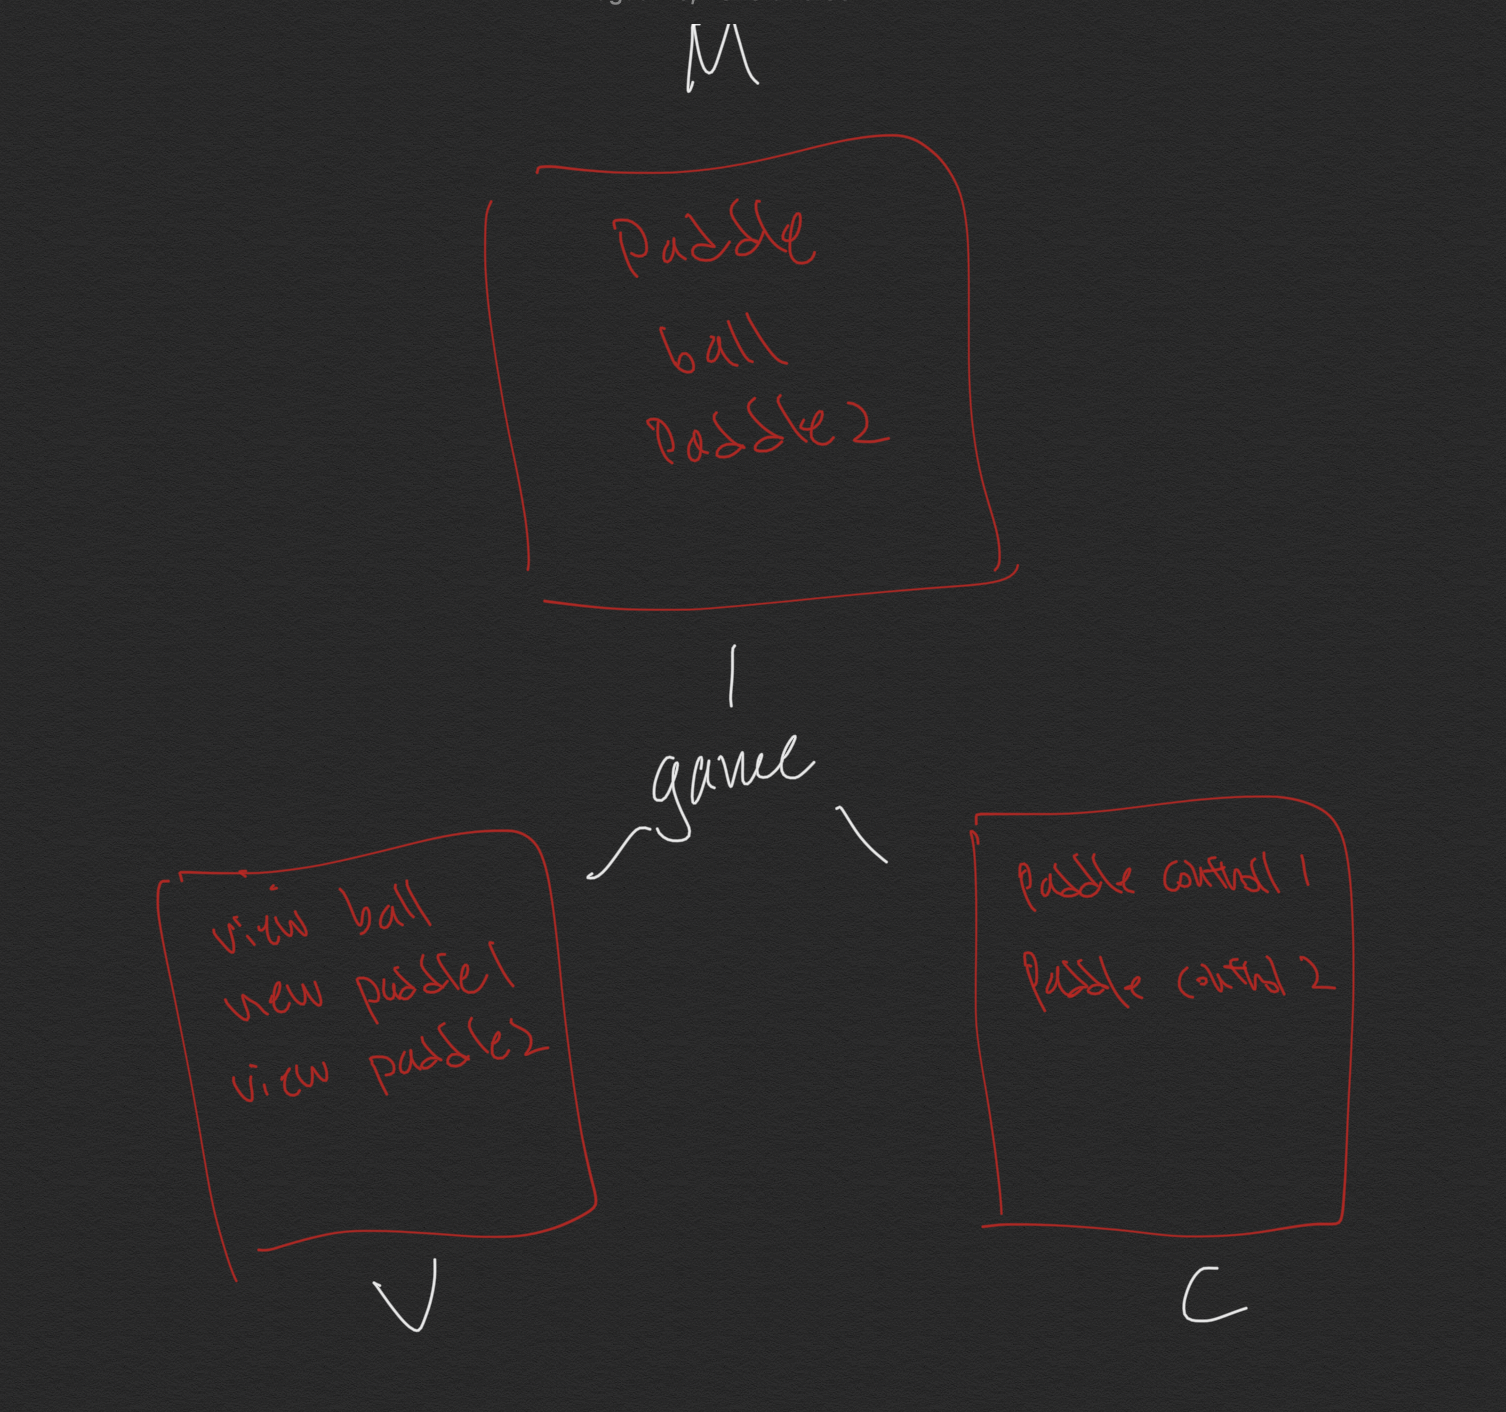 M
Paddle
ball
Paddle 2
game
view ball
view paddle 1
view paddle 2
V
Paddle control 1
Paddle control 2
C